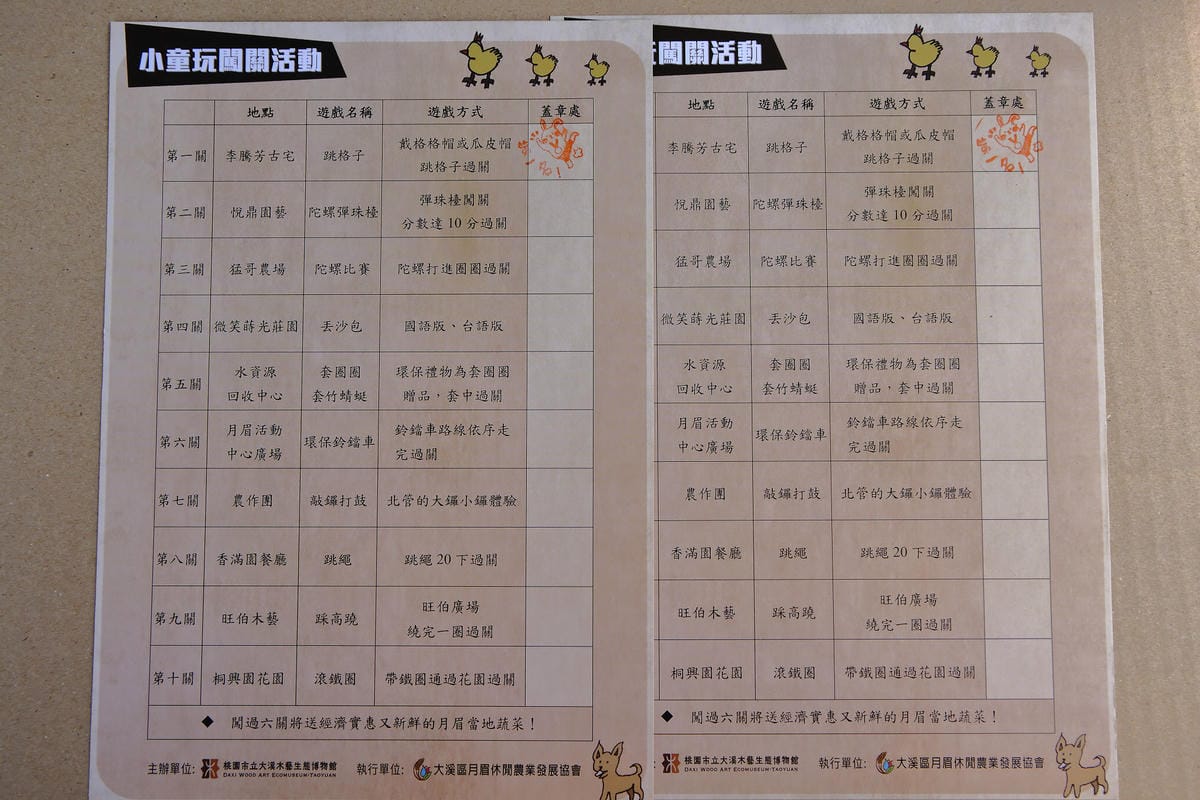 小童玩闖關活動
地點 遊戲名稱 遊戲方式 蓋章處
第一關 李騰芳古宅 跳格子 戴格格帽或瓜皮帽
跳格子過關
第二關 悅鼎園藝 陀螺彈珠檯 彈珠檯闖關
分數達10分過關
第三關 猛哥農場 陀螺比賽 陀螺打進圈圈過關
第四關 微笑蒔光莊園 丟沙包 國語版、台語版
第五關 水資源 套圈圈 環保禮物為套圈圈
回收中心 套竹蜻蜓 贈品,套中過關
第六關 月眉活動 環保鈴鐺車 鈴鐺車路線依序走
中心廣場 完過關
第七關 農作團 敲鑼打鼓 北管的大鑼小鑼體驗
第八關 香滿園餐廳 跳繩 跳繩20下過關
第九關 旺伯木藝 踩高蹺 旺伯廣場
繞完一圈過關
第十關 桐興園花園 滾鐵圈 帶鐵圈通過花園過關
◆ 闖過六關將送經濟實惠又新鮮的月眉當地蔬菜!
主辦單位: 桃園市立大溪木藝生態博物館 執行單位: 大溪區月眉休閒農業發展協會
DAXI WOOD ART ECOMUSEUM·TAOYUAN
闖關活動
地點 遊戲名稱 遊戲方式 蓋章處
李騰芳古宅 跳格子 戴格格帽或瓜皮帽
跳格子過關
悅鼎園藝 陀螺彈珠檯 彈珠檯闖關
分數達10分過關
猛哥農場 陀螺比賽 陀螺打進圈圈過關
微笑蒔光莊園 丟沙包 國語版、台語版
水資源 套圈圈 環保禮物為套圈圈
回收中心 套竹蜻蜓 贈品,套中過關
月眉活動 環保鈴鐺車 鈴鐺車路線依序走
中心廣場 完過關
農作團 敲鑼打鼓 北管的大鑼小鑼體驗
香滿園餐廳 跳繩 跳繩20下過關
旺伯木藝 踩高蹺 旺伯廣場
繞完一圈過關
桐興園花園 滾鐵圈 帶鐵圈通過花園過關
◆ 闖過六關將送經濟實惠又新鮮的月眉當地蔬菜!
桃園市立大溪木藝生態博物館 執行單位: 大溪區月眉休閒農業發展協會
DAXI WOOD ART ECOMUSEUM·TAOYUAN